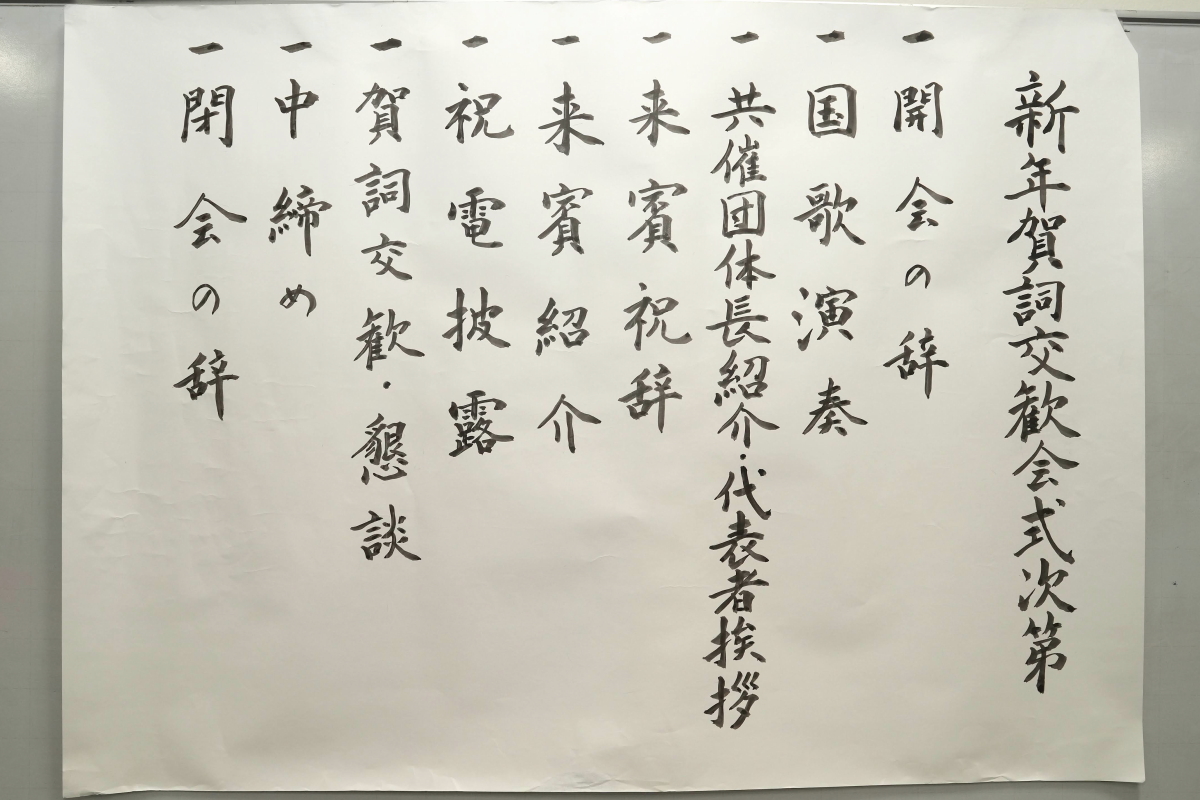 新年賀詞交歓会式次第
一 開会の辞
一 国歌演奏
一 共催団体長紹介・代表者挨拶
一 来賓祝辞
一 来賓紹介
一 祝電披露
一 賀詞交歓・懇談
一 中締め
一 閉会の辞